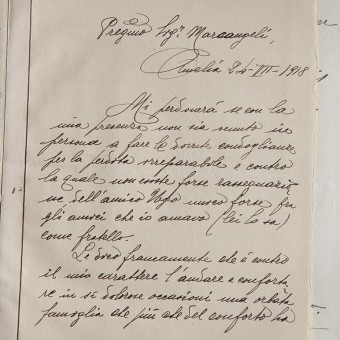 Pregmo Sigr Marcangeli,
Amelia 24-VII-1918
Mi perdonerà se con la
mia presenza non sia venuto in
persona a fare le dovute condoglianze
per la perdita irreparabile e contro
la quale non esiste forse rassegnazio
ne dell'amico Ugo unico forse fra
gli amici che io amava (lei lo sa)
come fratello.
Le dico francamente che è contro
il mio carattere l'andare a conforta
re in sì dolorose occasioni una orbata
famiglia che più che del conforto ha